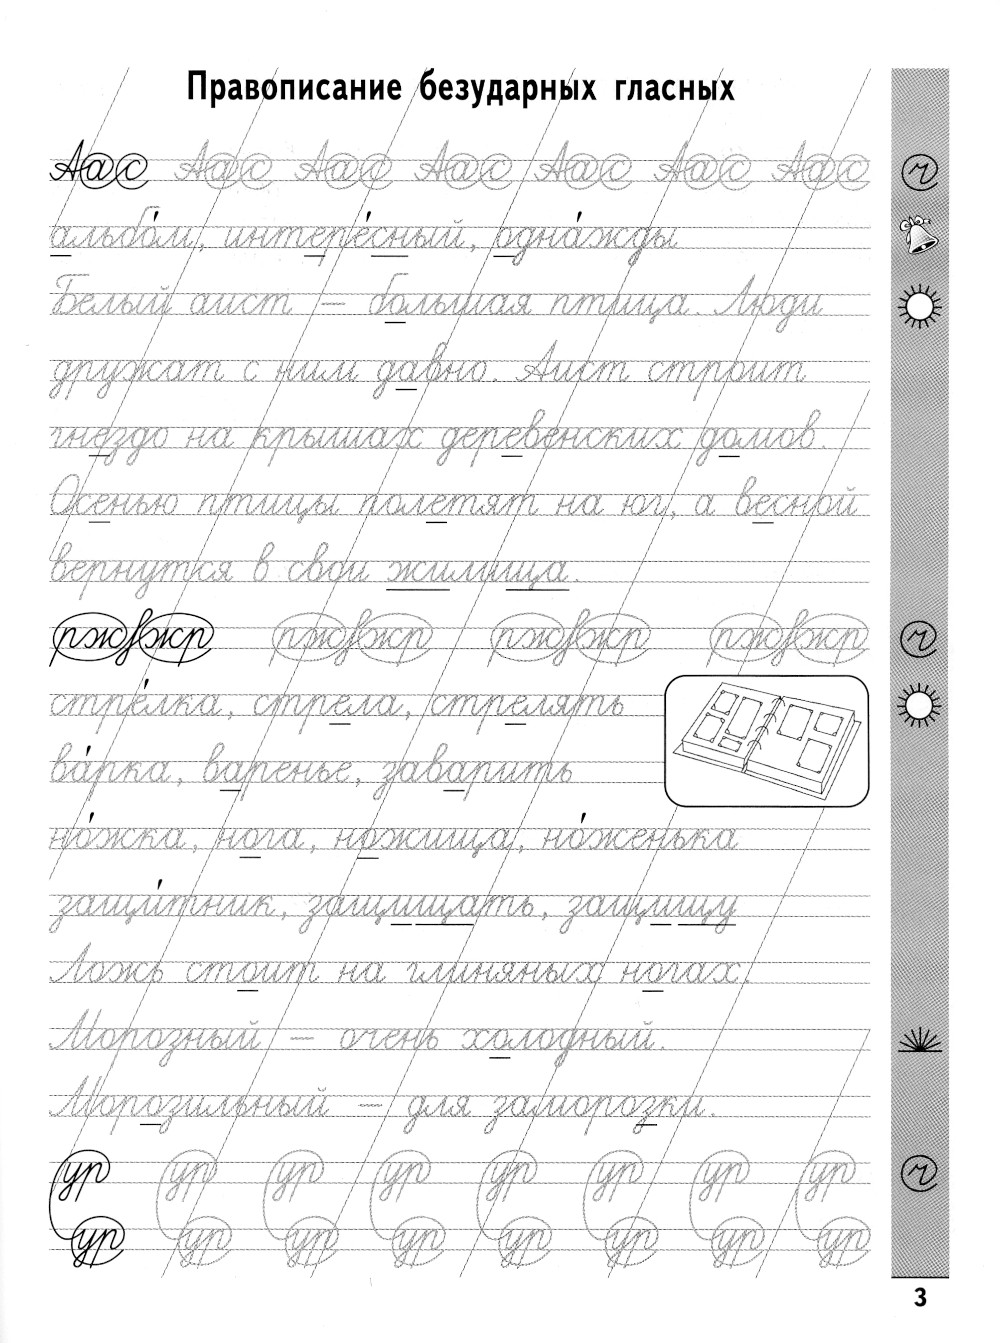 Правописание безударных гласных
Аас Аас Аас Аас Аас Аас Аас
альбо́м, интере́сный, одна́жды
Белый аист – большая птица. Люди
дружат с ним давно. Аист строит
гнездо на крышах деревенских домов.
Осенью птицы полетят на юг, а весной
вернутся в свои жилища.
ржвжр ржвжр ржвжр ржвжр
стре́лка, стрела, стрелять
ва́рка, варенье, заварить
но́жка, нога, ножища, но́женька
защи́тник, защищать, защищу
Ложь стоит на глиняных ногах.
Морозный – очень холодный.
Морозильный – для заморозки.
ур ур ур ур ур ур ур ур
ур ур ур ур ур ур ур ур
ч
ч
ч
3